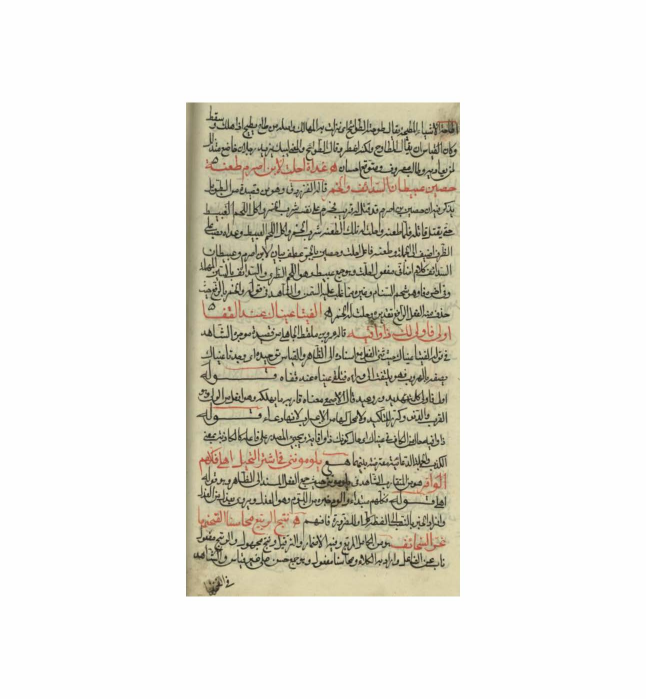 الاشياء المطيحة يقال طوحته الطوائح اي نزلت به المهالك واصله من طاح يطيح اذا هلك وسقط
وكان القياس ان يقال المطاوح ولكنه اضطر وقال الطوائح والمعنى ليبك يزيد رجلان خاضع متذلل
لمن يعاديه وطالب معروف ومتوقع احسان هـ غداة احلت لابن اصرم طعنة
حصين عبيطات السدائف والخمر قاله الفرزدق وهو من قصيدة من الطويل
يذكر فيها ان حصين بن اصرم قد قتل له قريب فحرم على نفسه شرب الخمر واكل اللحم العبيط
حتى يقتل قاتله فلما طعنه واحلت له تلك الطعنة شرب الخمر واكل اللحم العبيط وغداة نصب على
الظرف اضيف الى الجملة وطعنة فاعل احلت وحصين بالجر عطف بيان لابن اصرم وعبيطات
السدائف كلام اضافي مفعول احلت وهو جمع عبيط وهو اللحم الطري والسدائف بالسين المهملة
وهو شحم السنام وغيره مما غلب عليه السمن والشاهد في قوله والخمر بالرفع حيث
حذف منه الفعل الرافع تقديره وحلت له الخمر هـ الفيتا عيناك عند القفا
اولى فاولى لك ذا واقيه قاله عمرو بن ملقط الجاهلي من قصيدة من الرجز الشاهد
في قوله الفيتا عيناك حيث ثنى الفعل مع اسناده الى الظاهر والقياس توحيده اي وجدتا عيناك
يصفه بالهروب فهو يلتفت الى ورائه فتلفى عيناه عند قفاه قوله
اولى فاولى كلمة تهديد ووعيد قال الاصمعي معناه قاربه ما يهلكه وهو افعل من الولي وهو
القرب وكرر للتأكيد ولا محل لها من الاعراب لانها دعاء قوله
ذا واقيه حال من الكاف في عيناك اي حال كونك ذا واقاية ويجيء المصدر على فاعلة كالكاذبة بمعنى
الكذب والجملة الدعائية معترضة بينهما يلومونني في اشتراء النخيل اهلي فكلهم
الوم هو من المتقارب الشاهد في يلومونني حيث جمع الفعل المسند الى الظاهر وهو قوله
اهلي قوله فكلهم مبتدا والوم خبره من اللوم وهو العذل ويروى
فافهم هـ نتج الربيع محاسنا القحنها
غر السحائب هو من الكامل المربع وفيه الاضمار والترفيل ونتج مجهول والربيع مفعول
ناب عن الفاعل واراد به الكلاء ومحاسنا مفعول وهو جمع حسن على غير قياس والشاهد
في القحنها